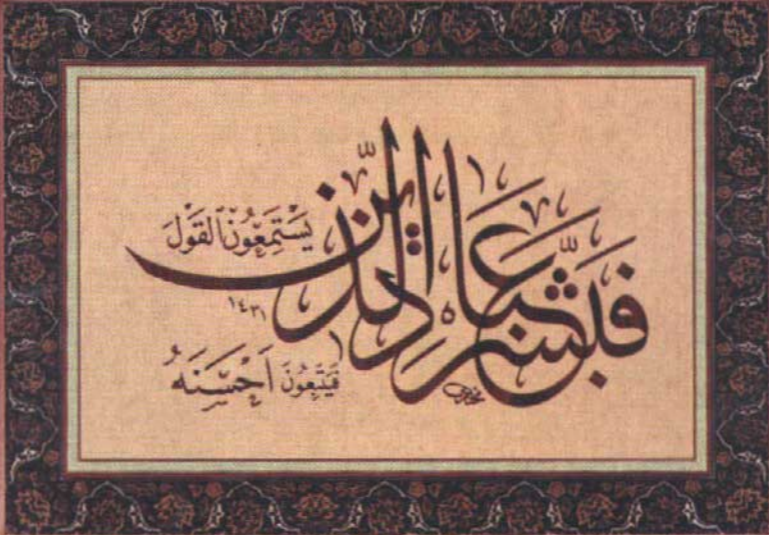 فَبَشِّرْ عِبَادِ الَّذِينَ
يَسْتَمِعُونَ الْقَوْلَ
فَيَتَّبِعُونَ أَحْسَنَهُ
١٤٣١